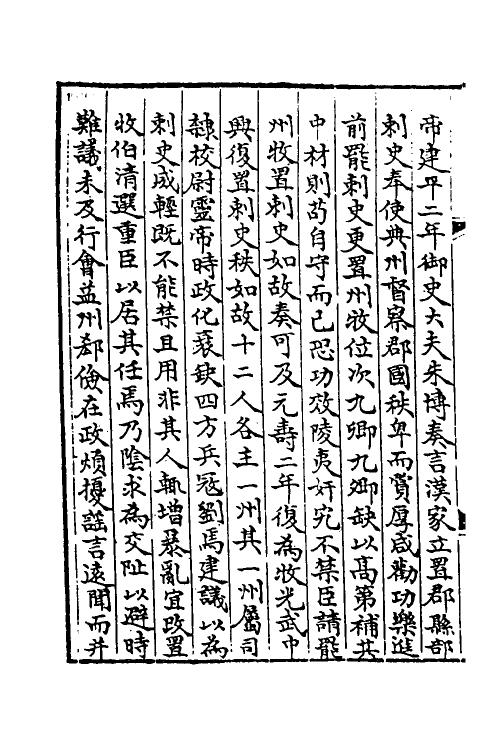 帝建平二年御史大夫朱博奏言漢家立置郡縣部
刺史奉使典州督察郡國秩卑而賞厚咸勸功樂進
前罷刺史更置州牧位次九卿九卿缺以髙第補其
中材則茍自守而已恐功效陵夷奸宄不禁臣請罷
州牧置刺史如故奏可及元壽二年復為牧光武中
興復置刺史秩如故十二人各主一州其一州屬司
隷校尉靈帝時政化衰缺四方兵寇劉焉建議以為
刺史威輕既不能禁且用非其人輒增暴亂宜改置
牧伯清選重臣以居其任焉乃陰求為交阯以避時
難議未及行會益州郄儉在政煩擾謡言逺聞而并